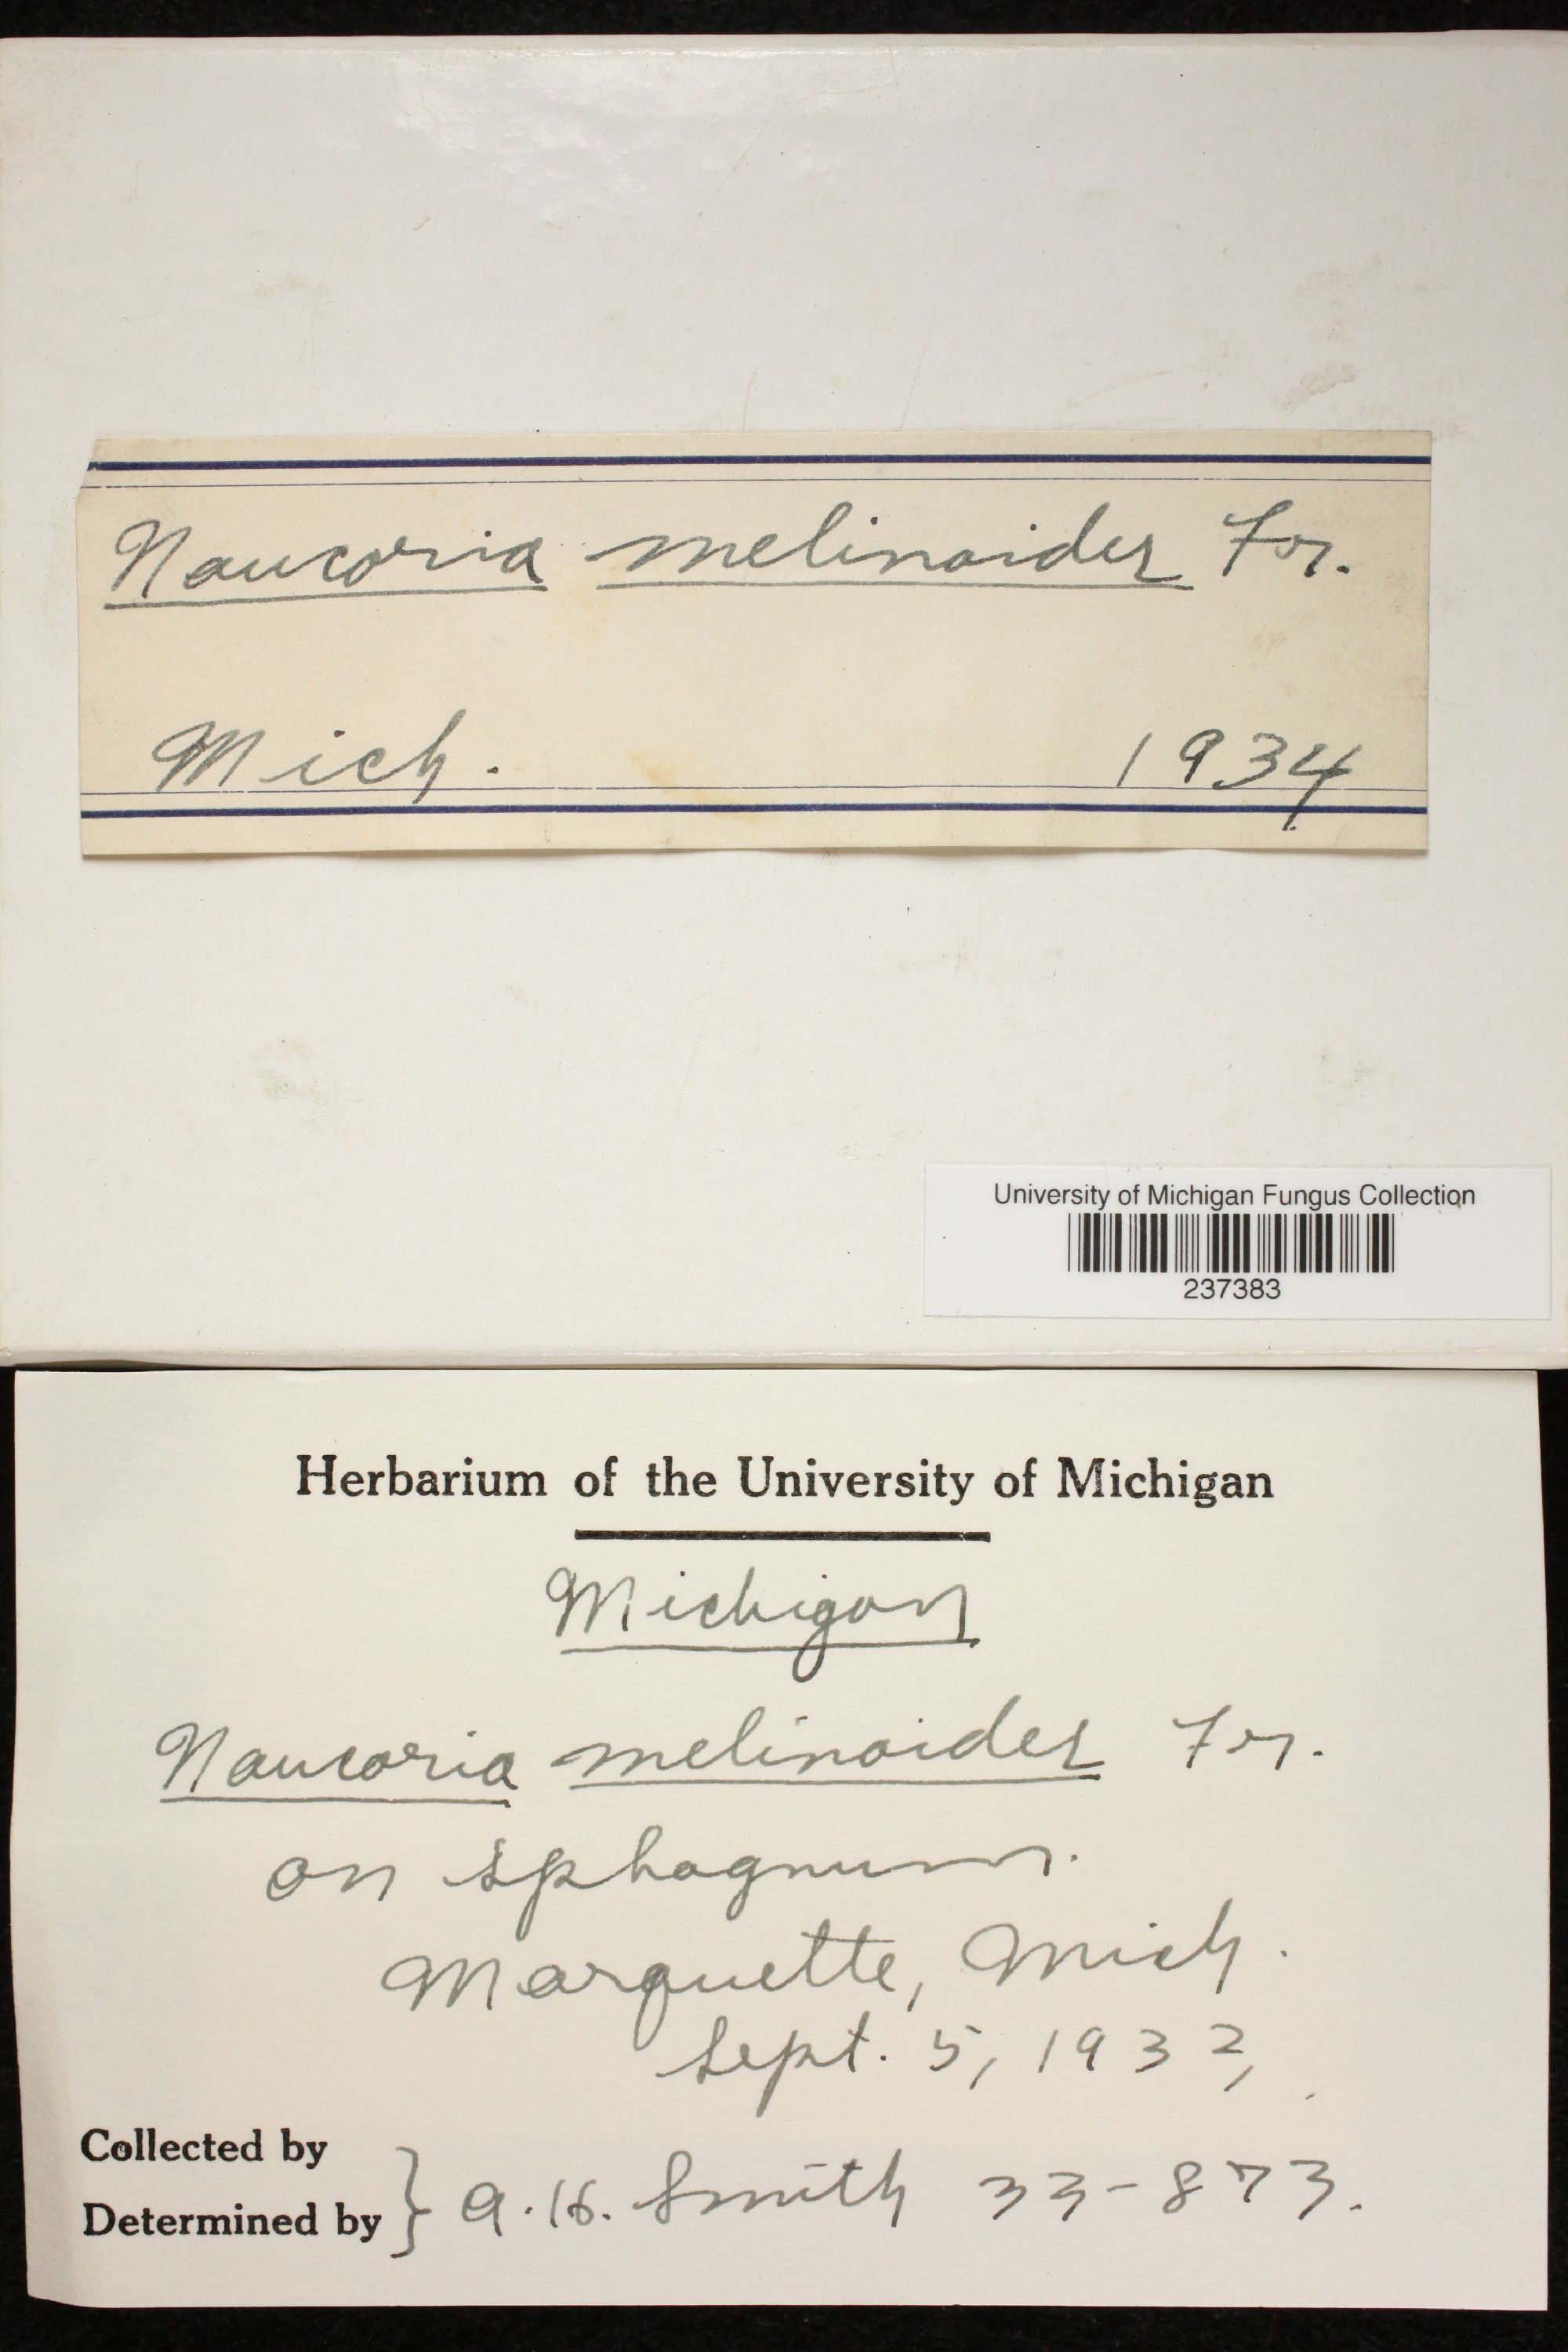 Naucoria melinoides Fr.
Mich. 1934
University of Michigan Fungus Collection
237383
Herbarium of the University of Michigan
Michigan
Naucoria melinoides Fr.
on sphagnum.
Marquette, Mich.
Sept. 5, 1932,
Collected by
Determined by } A.H. Smith 33-873.